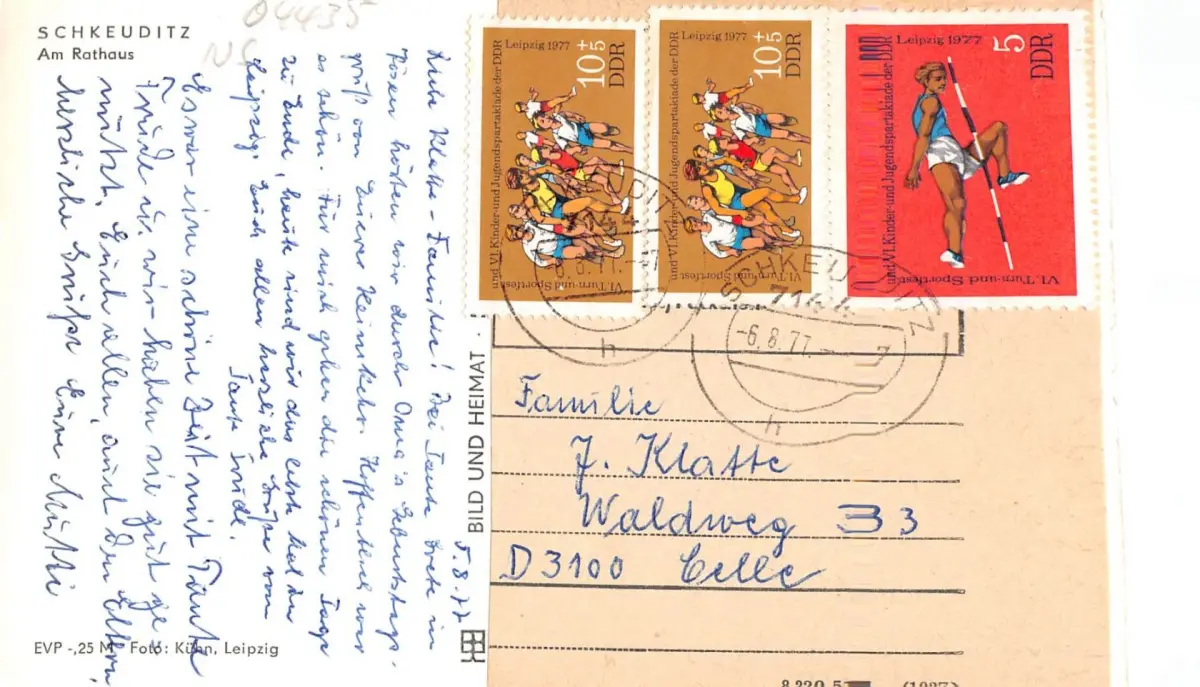 SCHKEUDITZ
Am Rathaus
04435
NS
5.8.77
Liebe Klatte-Familie! Bei Tante Grete in
hörten wir durch Oma's Geburtstags-
gruß von Eurer Heimkehr. Hoffentlich war
es schön. Für mich gehen die schönen Tage
zu Ende, heute sind wir das letzte Mal in
Leipzig. Euch allen herzliche Grüße von
Tante Trude.
Es war eine schöne Zeit mit Tante
Trude u. wir haben sie gut ge-
nützt. Euch allen, auch den Eltern,
herzliche Grüße Eure Mutti
EVP -,25 M Foto: Kühn, Leipzig
BILD UND HEIMAT
Leipzig 1977
10+5
DDR
VI. Turn- und Sportfest
und VI. Kinder- und Jugendspartakiade der DDR
Leipzig 1977
10+5
DDR
VI. Turn- und Sportfest
und VI. Kinder- und Jugendspartakiade der DDR
Leipzig 1977
5
DDR
VI. Turn- und Sportfest
und VI. Kinder- und Jugendspartakiade der DDR
SCHKEUDITZ
7144
-6.8.77.-7
h
h
Familie
J. Klatte
Waldweg 33
D3100 Celle